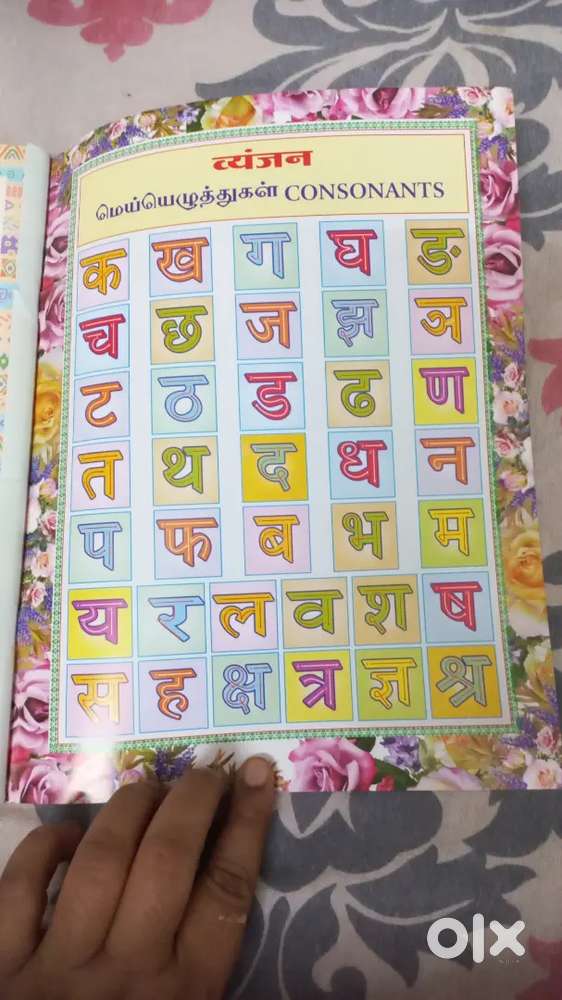 व्यंजन
மெய்யெழுத்துகள் CONSONANTS
क ख ग घ ङ
च छ ज झ ञ
ट ठ ड ढ ण
त थ द ध न
प फ ब भ म
य र ल व श ष
स ह क्ष त्र ज्ञ श्र
olx